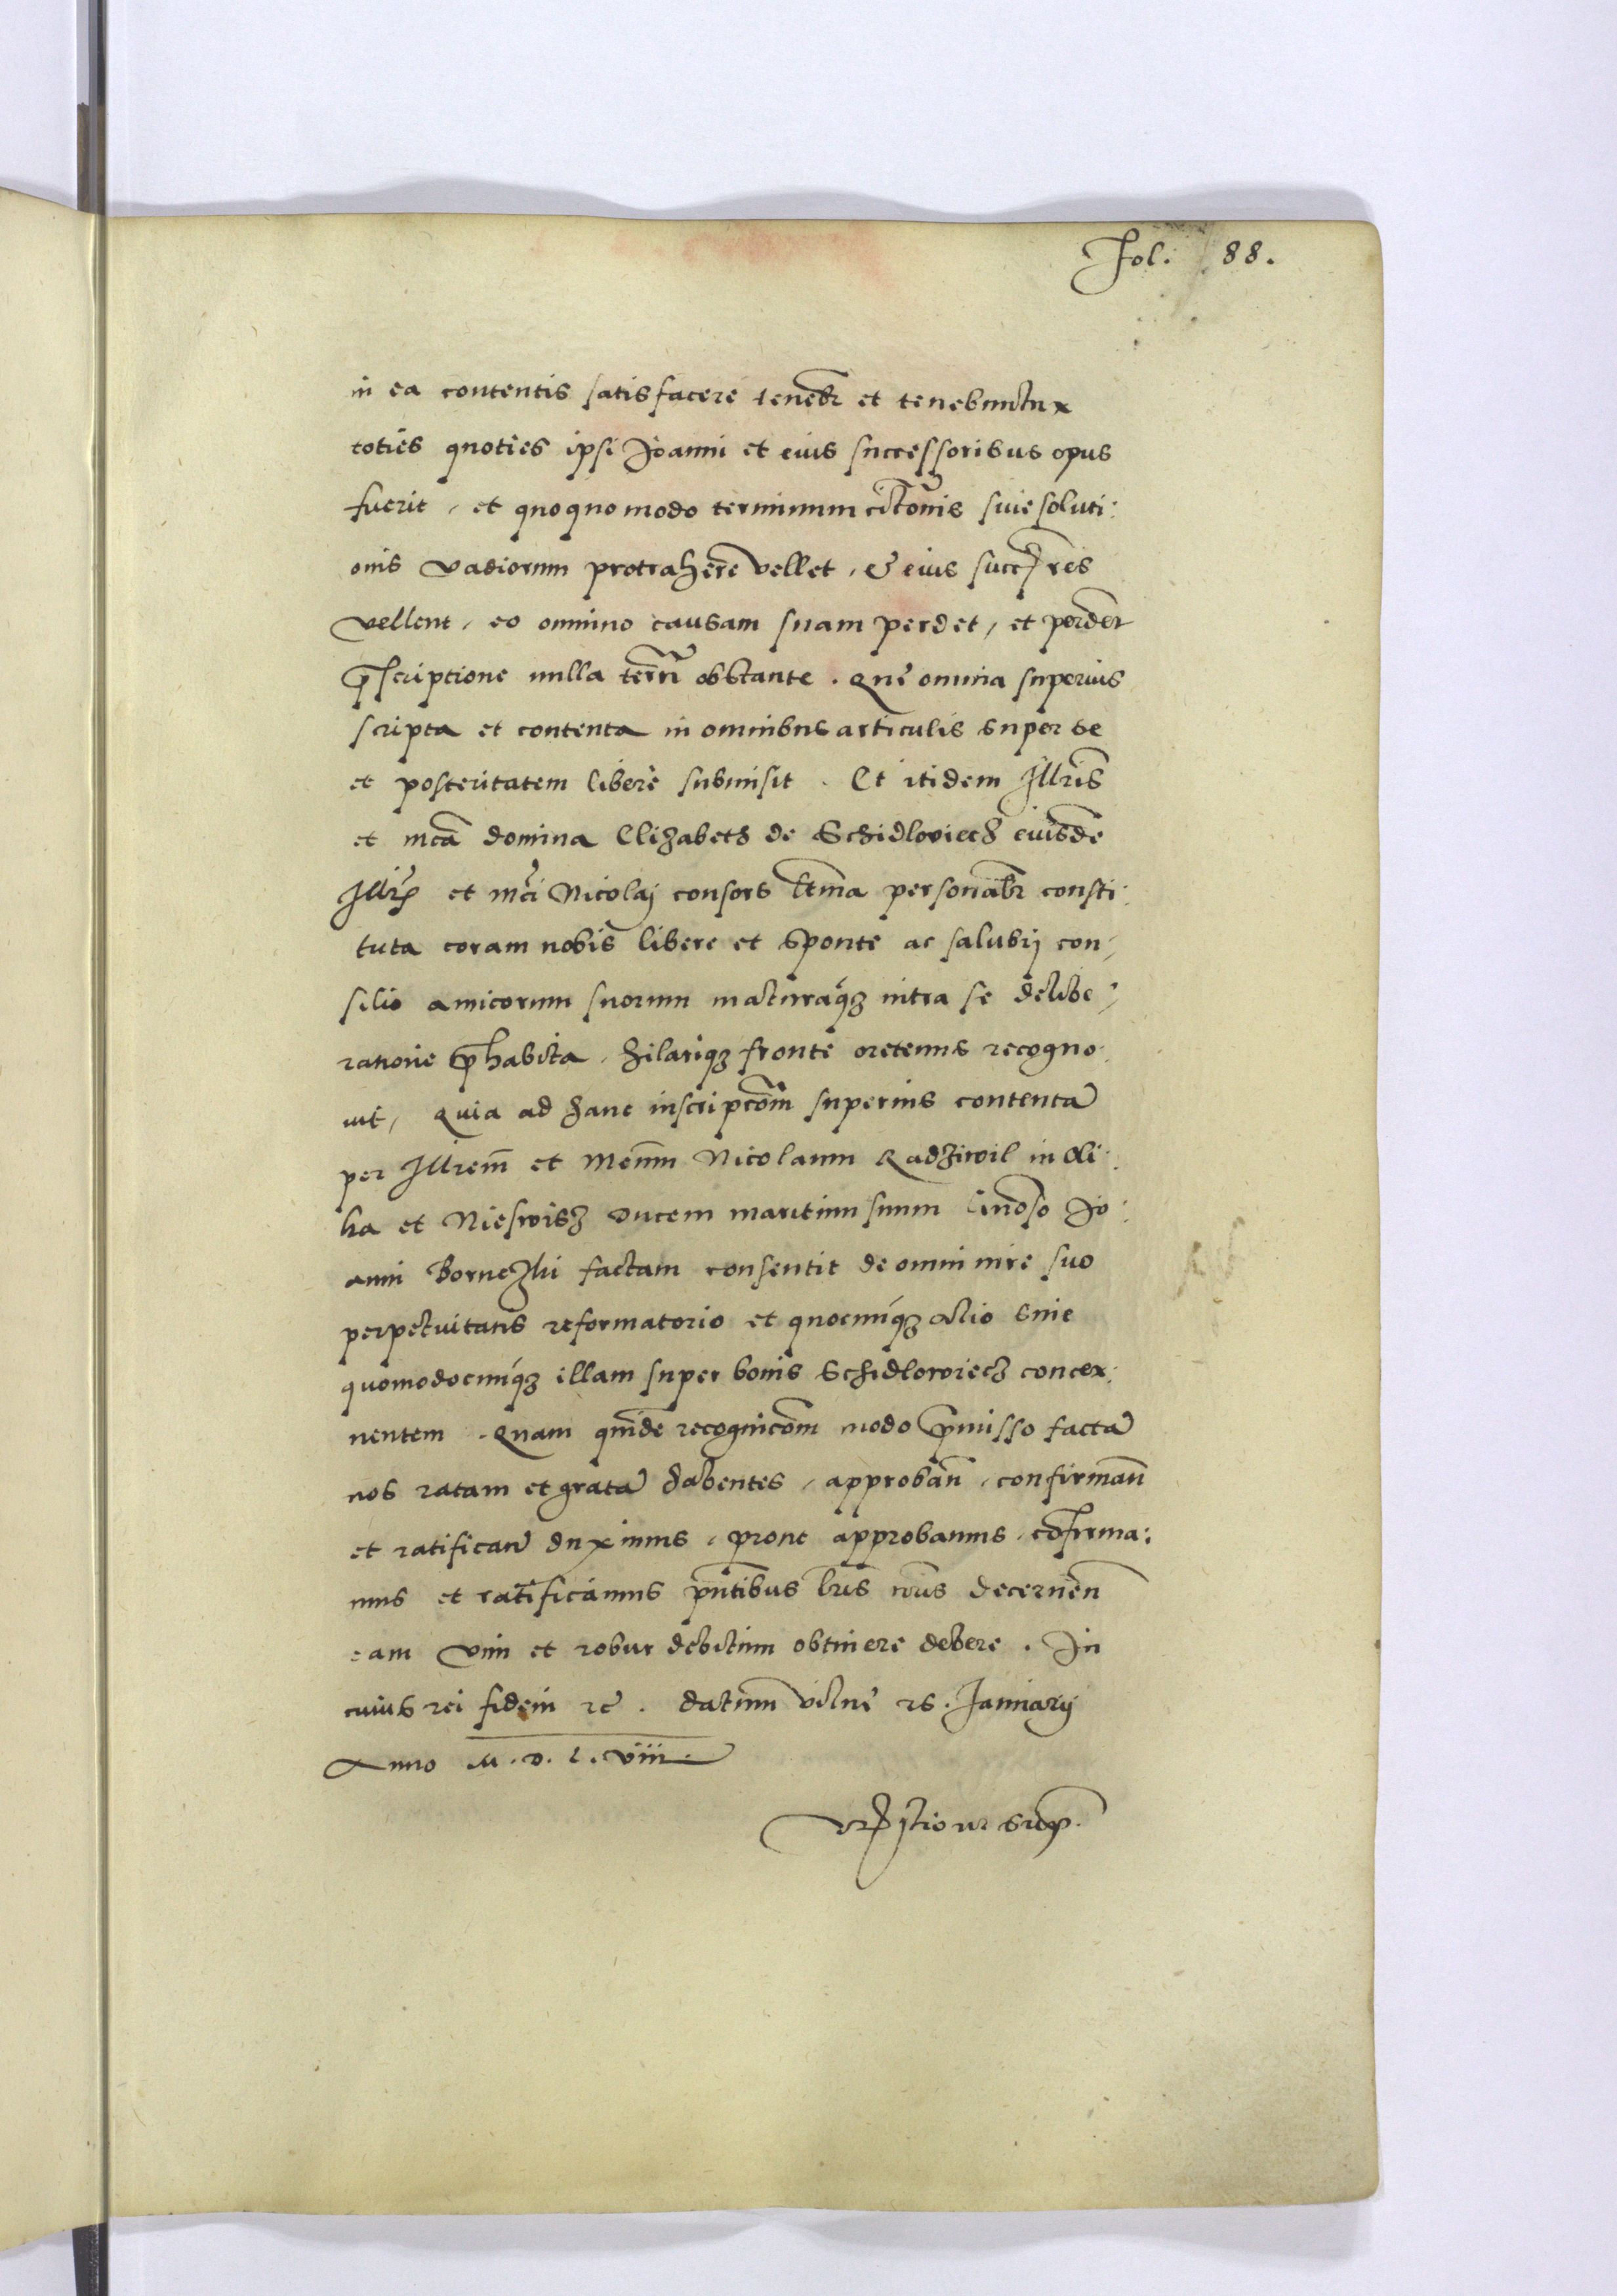 Fol. 88.
in ea contentis satisfacere teneb͞r et tenebuntur
toties quoties ipsi Joanni et eius successoribus opus
fuerit, et quoquo modo terminum cita͞onis siue soluti:
onis vadiorum protrahere vellet, & eius succ͞res
vellent, eo omnino causam suam perdet, et perden͞t
p͞scriptione nulla ter͞ra obstante. Que omnia superius
scripta et contenta in omnibus articulis super se
et posteritatem libere submisit. Et itidem Ill͞ris
et m͞ca domina Elizabeth de Schidloviecz eiusde͞
Ill͞ris et m͞ci Nicolaj consors l͞tma personal͞r consti:
tuta coram nobis libere et sponte ac salubrj con,
silio amicorum suorum maturaq́ꝫ intra se delibe,
ratione p͞habita, hilariqꝫ fronte oretenus recogno:
uit, Quia ad hanc inscripc͞om superius contenta͞
per Illrem͞ et M͞cum Nicolaum Radziwil in Oli:
ka et Nieswisz Ducem maritum suum G͞noso Jo:
anni Borne͞ki factam consentit de omni iure suo
perpetuitatis reformatorio et quocunq́ꝫ alio siue
quomodocunq́ꝫ illam super bonis Schidlowiecz concer:
nentem. Quam quide͞ recognic͞om modo p͞misso facta͞
nos ratam et grata͞ habentes, approban͞, confirman͞
et ratifican͞ duximus, prout approbamus, co͞firma:
mus et ratificamus p͞ntibus l͞ris n͞ris decernen͞
eam vim et robur debitum obtinere debere. In
cuius rei fidem ꝛc͞. datum vilne 26. Januarij
Anno M.D.L.viii.